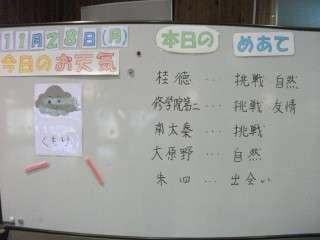 11月28日(月)
今日のお天気
くもり
本日の めあて
桂徳 … 挑戦 自然
修学院第二 … 挑戦 友情
南太秦 … 挑戦
大原野 … 自然
朱四 … 出会い